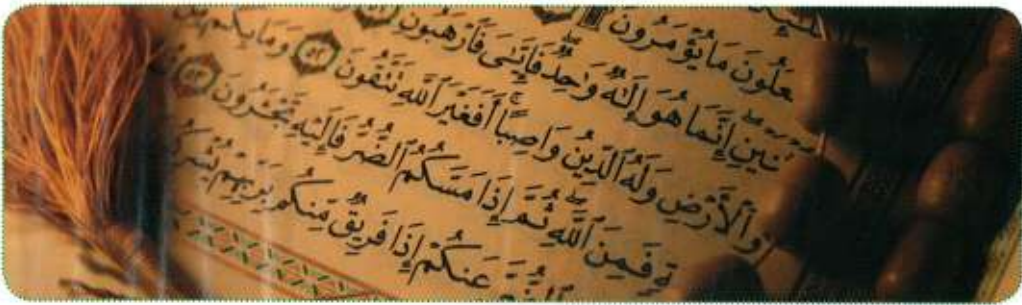 عَلُونَ مَا يُؤْمَرُونَ ۩
نَيْنِ إِنَّمَا هُوَ إِلَٰهٌ وَٰحِدٌ فَإِيَّٰيَ فَٱرْهَبُونِ ٥١
وَٱلْأَرْضِ وَلَهُ ٱلدِّينُ وَاصِبًا ۚ أَفَغَيْرَ ٱللَّهِ تَتَّقُونَ ٥٢ وَمَا بِكُم
ةٍ فَمِنَ ٱللَّهِ ۖ ثُمَّ إِذَا مَسَّكُمُ ٱلضُّرُّ فَإِلَيْهِ تَجْـَٔرُونَ ٥٣
عَنكُمْ إِذَا فَرِيقٌ مِّنكُم بِرَبِّهِمْ يُشْرِكُ